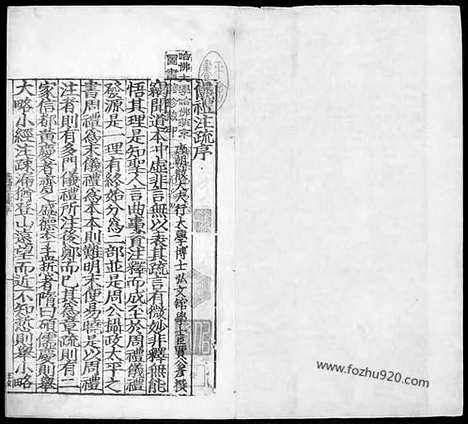 儀禮注疏序
唐朝散大夫行大學博士弘文館學士臣賈公彥撰
竊聞道本冲虛非言無以表其疏言有微妙非釋無能
悟其理是知聖人言曲事資注釋而成至於周禮儀禮
發源是一理有終始分為二部並是周公攝政大平之
書周禮為末儀禮為本本則難明末便易曉是以周禮
注者則有多門儀禮所注後鄭而已其為章疏則有二
家信都黃慶者齊之盛德李孟悊者隋曰碩儒慶則舉
大略小經注疏漏猶登山遠望而近不知悊則舉小略
www.fozhu920.com